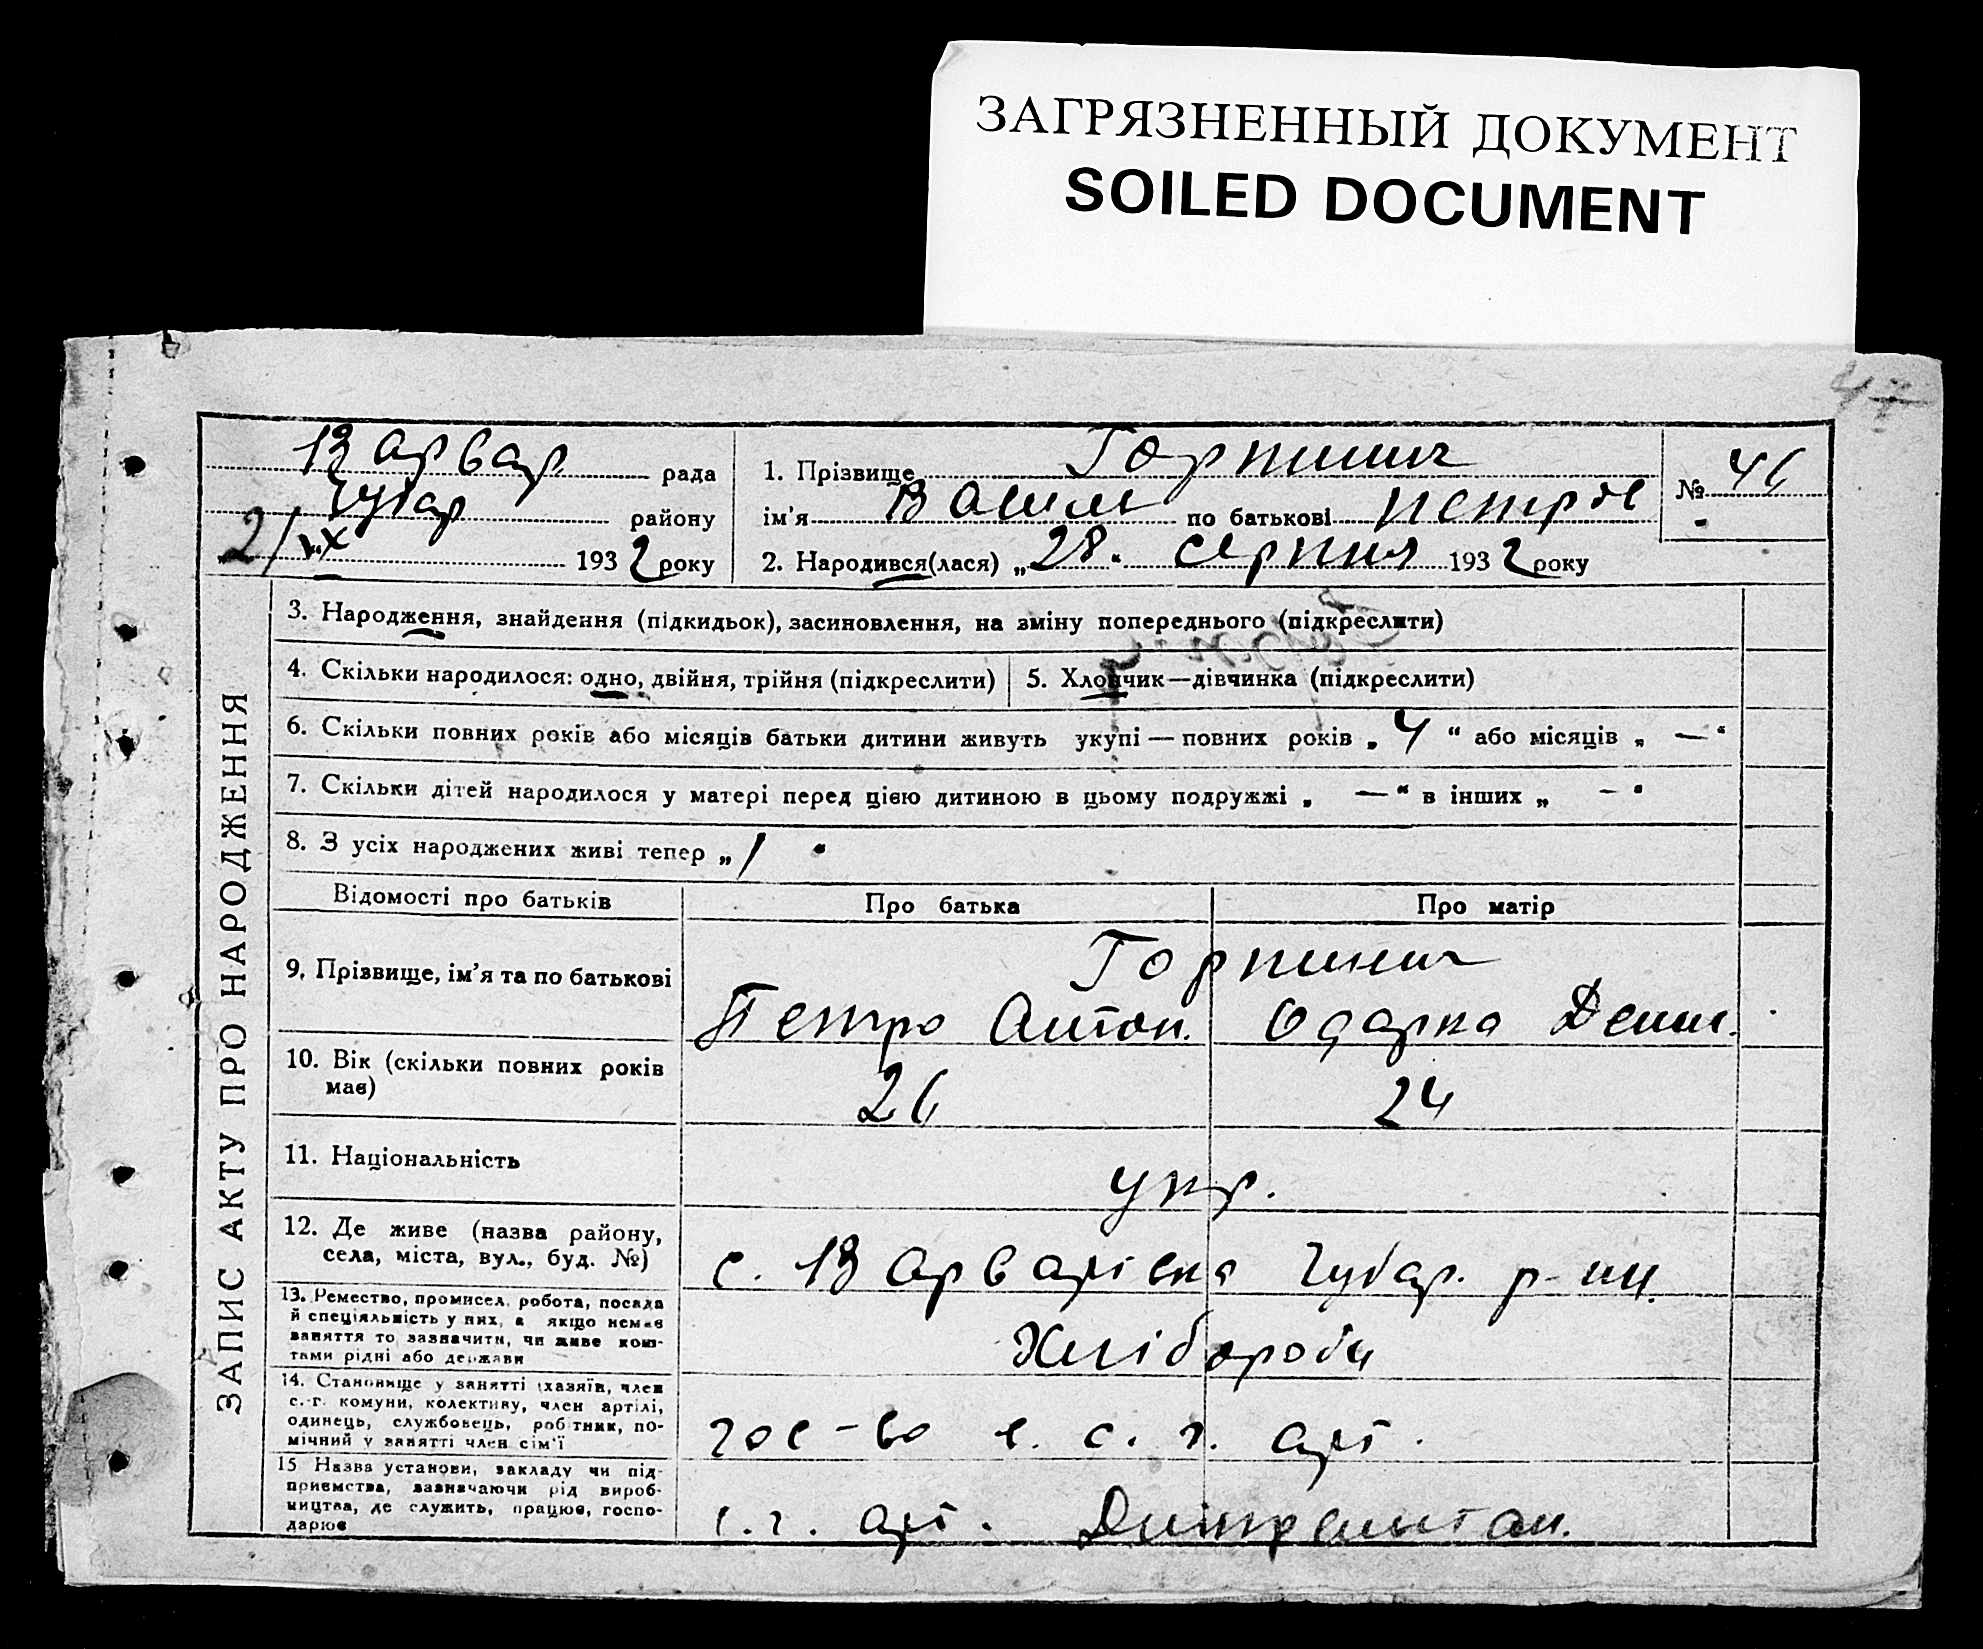 ЗАГРЯЗНЕННЫЙ ДОКУМЕНТ
SOILED DOCUMENT
47
Варвар. рада
Чубар району
2/IX 1932 року
1. Прізвище Горпинич
ім'я Васил по батькові Петров
2. Народився(лася) „28“ серпня 1932 року
№ 46
ЗАПИС АКТУ ПРО НАРОДЖЕННЯ
3. Народження, знайдення (підкидьок), засиновлення, на зміну попереднього (підкреслити)
4. Скільки народилося: одно, двійня, трійня (підкреслити) 5. Хлопчик—дівчинка (підкреслити)
6. Скільки повних років або місяців батьки дитини живуть укупі — повних років „ 4 “ або місяців „ — “
7. Скільки дітей народилося у матері перед цією дитиною в цьому подружжі „ — “ в інших „ — “
8. З усіх народжених живі тепер „ 1 “
Відомості про батьків Про батька Про матір
Горпинич
9. Прізвище, ім'я та по батькові
Петро Антон. Одарка Дени.
10. Вік (скільки повних років
має) 26 24
11. Національність укр.
12. Де живе (назва району,
села, міста, вул., буд. №) с. Варварівка Чубар. р-ну.
13. Ремество, промисел, робота, посада
й спеціяльність у них, а якщо немає
заняття то зазначити, чи живе кош-
тами рідні або держави
Хлібороби
14. Становище у занятті (хазяїн, член
с.-г. комуни, колективу, член артілі,
одинець, службовець, робітник, по-
мічний у занятті член сім'ї
гос-во в с. г. арт.
15 Назва установи, закладу чи під-
приємства, зазначаючи рід вироб-
ництва, де служить, працює, госпо-
дарює
с. г. арт.